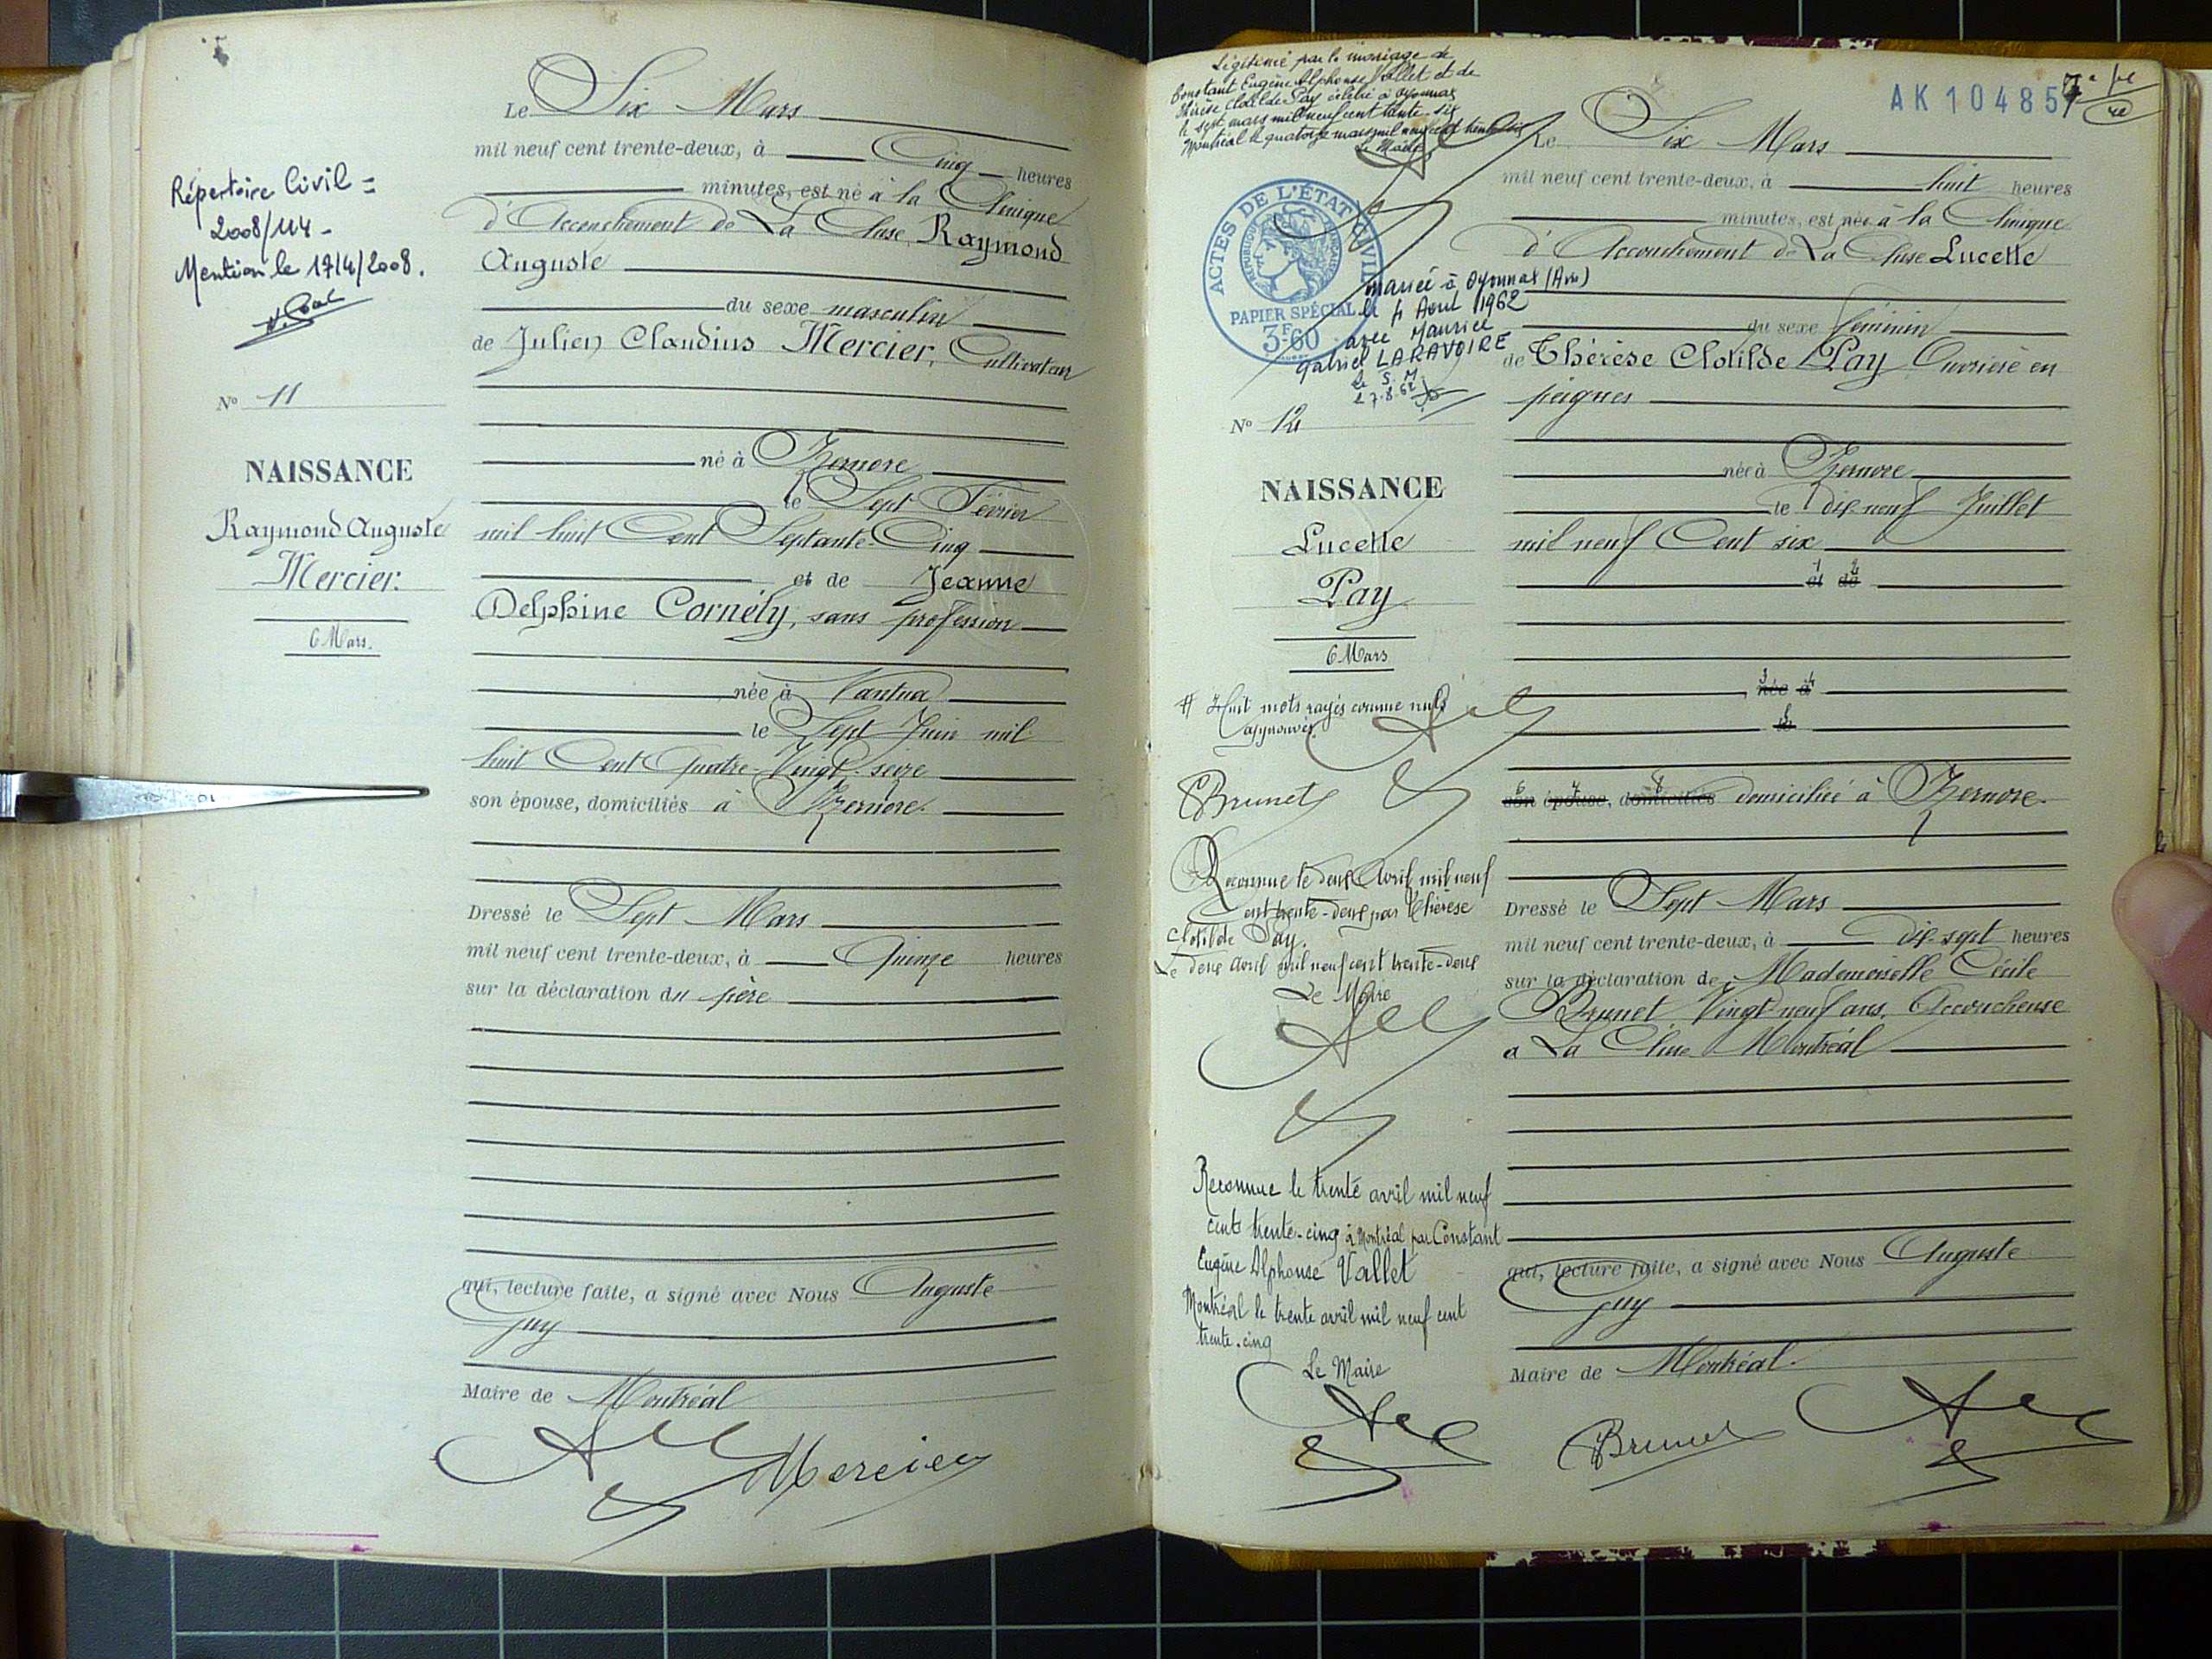 Répertoire Civil =
2008/114 -
Mention le 17/4/2008.
N° 11
NAISSANCE
Raymond Auguste
Mercier.
6 Mars.
Le Six Mars
mil neuf cent trente-deux, à Cinq heures
minutes, est né à la Clinique
d'Accouchement de La Cluse, Raymond
Auguste
du sexe masculin
de Julien Claudius Mercier, Cultivateur
né à Izernore
le Sept Février
mil huit Cent Septante-Cinq
et de Jeanne
Delphine Cornély, sans profession
née à Nantua
le Sept Juin mil
huit Cent Quatre-Vingt-seize
son épouse, domiciliés à Izernore.
Dressé le Sept Mars
mil neuf cent trente-deux, à Quinze heures
sur la déclaration du père
qui, lecture faite, a signé avec Nous Auguste
Guy
Maire de Montréal
Mercier
Légitimée par le mariage de
Constant Eugène Alphonse Vallet et de
Thérèse Clotilde Pay célébré à Oyonnax
le sept mars mil neuf cent trente-six
Montréal le quatorze mars mil neuf cent trente six
Le Maire
ACTES DE L'ÉTAT CIVIL
RÉPUBLIQUE FRANÇAISE
PAPIER SPÉCIAL
3F60
mariée à Oyonnax (Ain)
le 4 Aout 1962
avec Maurice
Gabriel LARAVOIRE
N° 12
NAISSANCE
Lucette
Pay
6 Mars
# Huit mots rayés comme nuls
approuvés.
CBrunet
Reconnue le deux Avril mil neuf
cent trente-deux par Thérèse
Clotilde Pay.
Le deux avril mil neuf cent trente-deux
Le Maire
Reconnue le trente avril mil neuf
cent trente-cinq à Montréal par Constant
Eugène Alphonse Vallet
Montréal le trente avril mil neuf cent
trente-cinq
Le Maire
AK 10485
Le Six Mars
mil neuf cent trente-deux, à huit heures
minutes, est née à la Clinique
d'Accouchement de La Cluse Lucette
du sexe féminin
de Thérèse Clotilde Pay Ouvrière en
peignes
née à Izernore
le dix-neuf Juillet
mil neuf Cent six
1 2
et de
3 4
née à
5
le
6 7 8
son épouse, domiciliés domiciliée à Izernore.
Dressé le Sept Mars
mil neuf cent trente-deux, à dix-sept heures
sur la déclaration de Mademoiselle Cécile
Brunet Vingt neuf ans, Accoucheuse
a La Cluse Montréal
qui, lecture faite, a signé avec Nous Auguste
Guy
Maire de Montréal.
CBrunet